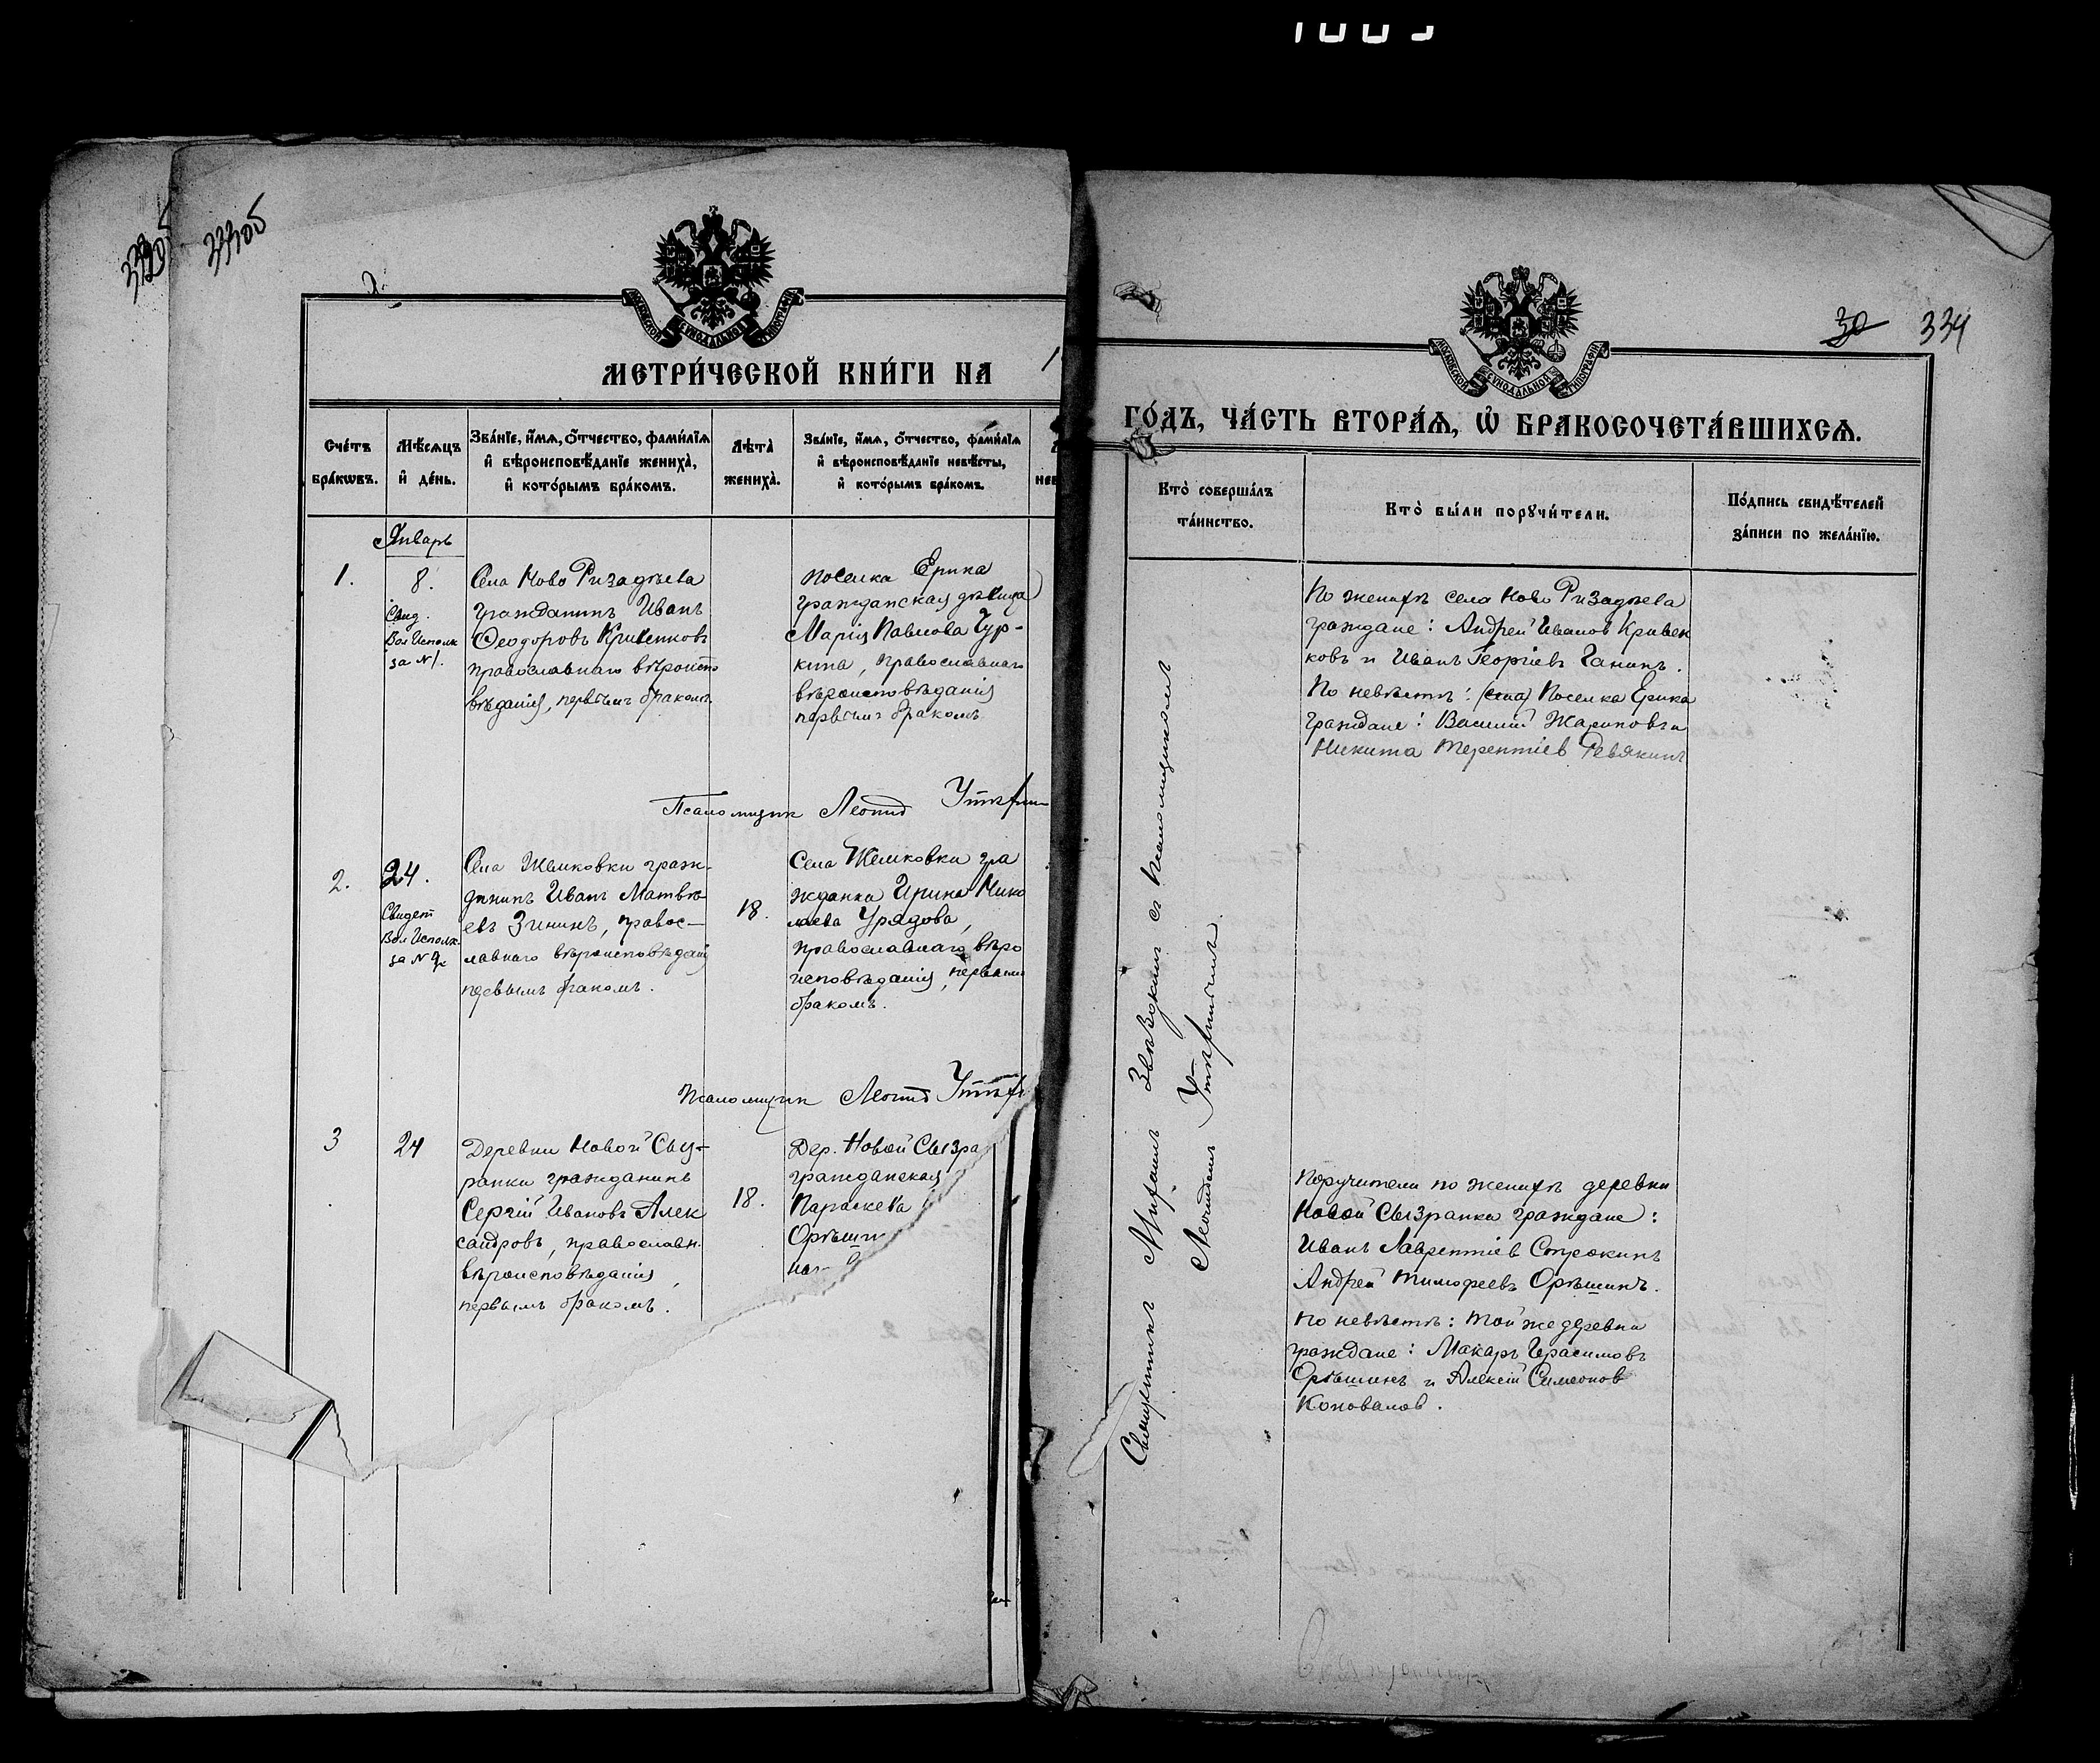 334
30
МЕТРИ́ЧЕСКОЙ КНИ́ГИ НА
ГО́ДЪ, ЧА́СТЬ ВТОРА́Ѧ, Ѡ҆ БРАКОСОЧЕТА́ВШИХСѦ.
Сче́тъ бра́кѡвъ.
Мѣ́сѧцъ и҆ де́нь.
Зва́нїе, и҆́мѧ, ѻ҆́тчество, фами́лїѧ
и҆ вѣроисповѣ́данїе жениха̀,
и҆ кото́рымъ бра́комъ.
Лѣ́та̀
жениха̀.
Зва́нїе, и҆́мѧ, ѻ҆́тчество, фами́лїѧ
и҆ вѣроисповѣ́данїе невѣ́сты,
и҆ кото́рымъ бра́комъ.
Кто̀ соверша́лъ
та́инство.
Кто̀ бы́ли порꙋчи́тели.
По́дпись свидѣ́телей
за́писи по жела́нїю.
Январь
1.
8.
Свид.
Вол Исполк
за №1.
Села Ново Ризадѣева
гражданинъ Иванъ
Ѳеодоровъ Кривенковъ
православнаго вѣроиспо
вѣданія, первымъ бракомъ.
поселка Ерика
гражданская дѣвица
Марія Павлова Чур-
кина, православнаго
вѣроисповѣданія
первымъ бракомъ
По женихѣ села Ново Ризадѣева
граждане: Андрей Иванов Кривен
ковъ и Иванъ Георгіевъ Ганинъ.
По невѣстѣ: (села) Поселка Ерика
граждане: Василій Жариновъ и
Никита Терентіев Ревякинъ
Псаломщик Леонид
2.
24.
Свидет
Вол Исполк.
за №
Села Жемковки граж-
динъ Иванъ Матвѣ-
евъ Зининъ, правос-
лавнаго вѣроисповѣданія
первымъ бракомъ.
18.
Села Жемковки гра
жданка Ирина Нико
лаева Урядова,
православнаго вѣро
исповѣданія, первымъ
бракомъ.
Псаломщик Леонид
3
24
Деревни Новой Сыз-
ранки гражданинъ
Сергій Ивановъ Алек
сандровъ, православн.
вѣроисповѣданія,
первымъ бракомъ.
18.
Дер. Новой Сызра
гражданская
Параскева
Орѣши
Поручители по женихѣ деревни
Новой Сызранки граждане:
Иванъ Лаврентіев Строкинъ
Андрей Тимофеевъ Орѣшинъ.
По невѣстѣ: той же деревни
граждане: Макаръ Герасимовъ
Орѣшинъ и Алексій Симеонов
Коновалов.
Священникъ Михаилъ Звѣздкинъ съ псаломщикомъ
Леонидомъ